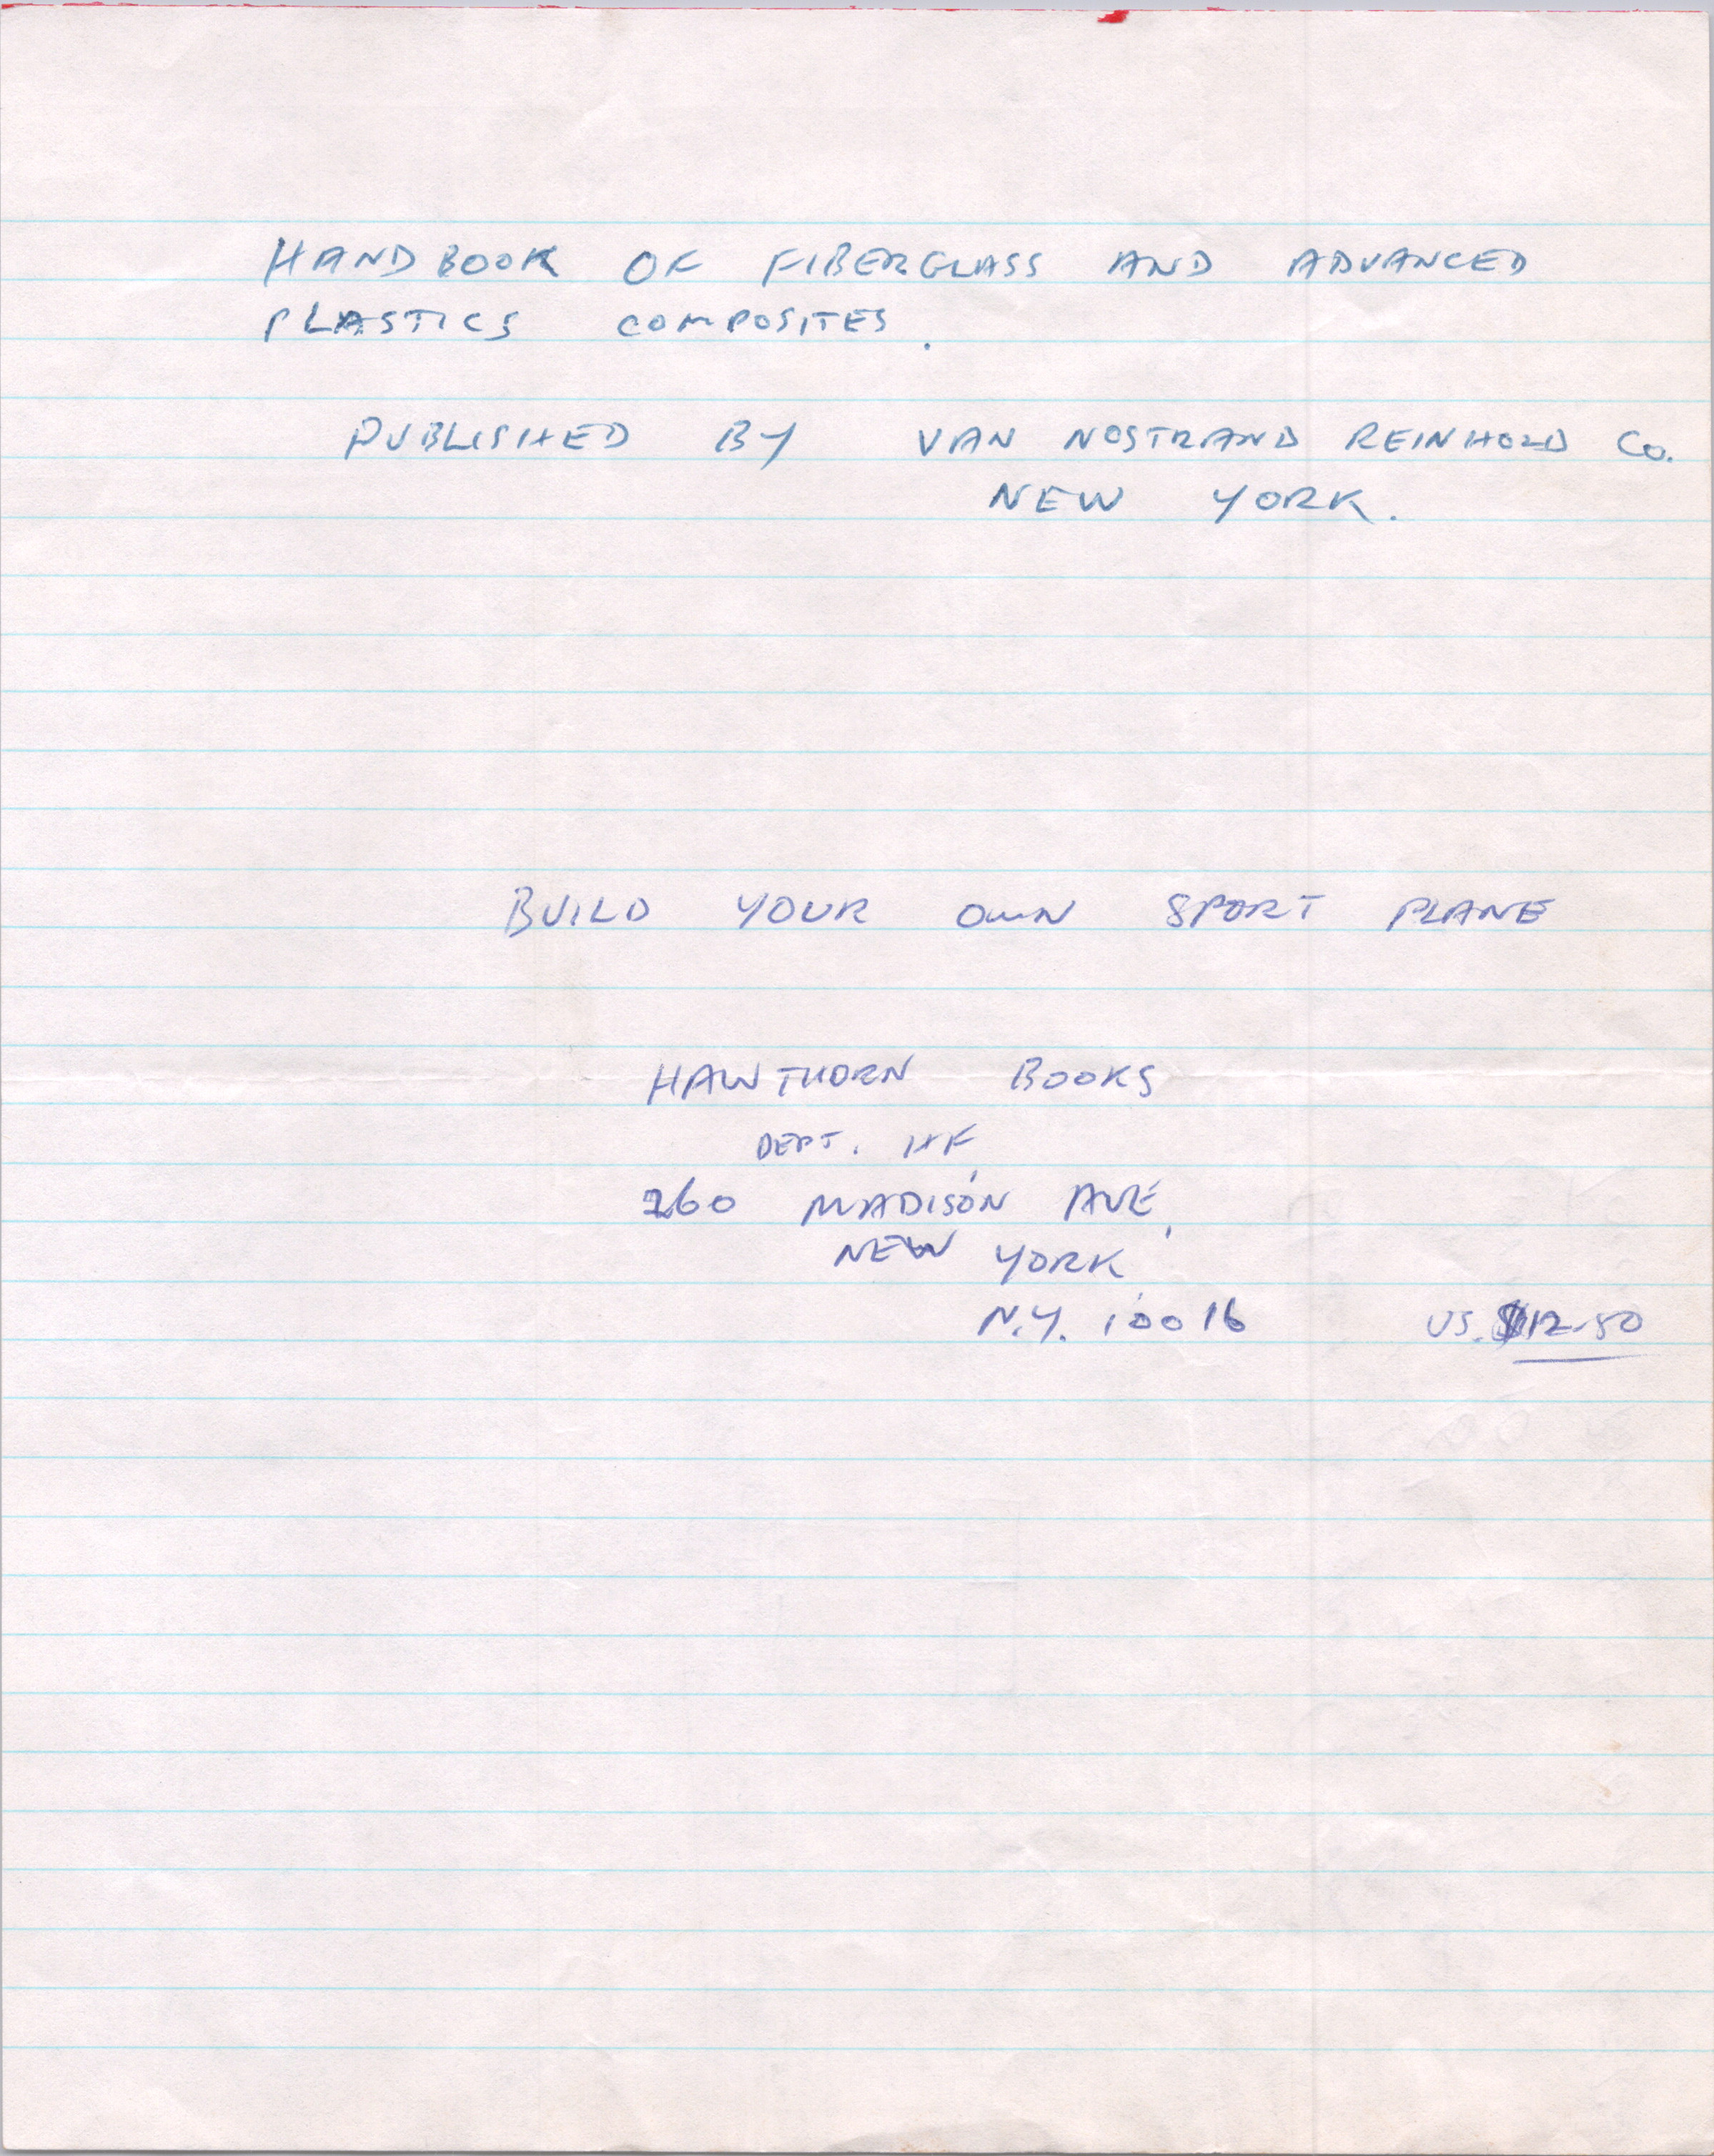 HANDBOOK OF FIBERGLASS AND ADVANCED
PLASTICS COMPOSITES.
PUBLISHED BY VAN NOSTRAND REINHOLD Co.
NEW YORK.
BUILD YOUR OWN SPORT PLANE
HAWTHORN BOOKS
DEPT. HF,
260 MADISON AVE,
NEW YORK,
N.Y. 10016 US. $12.50